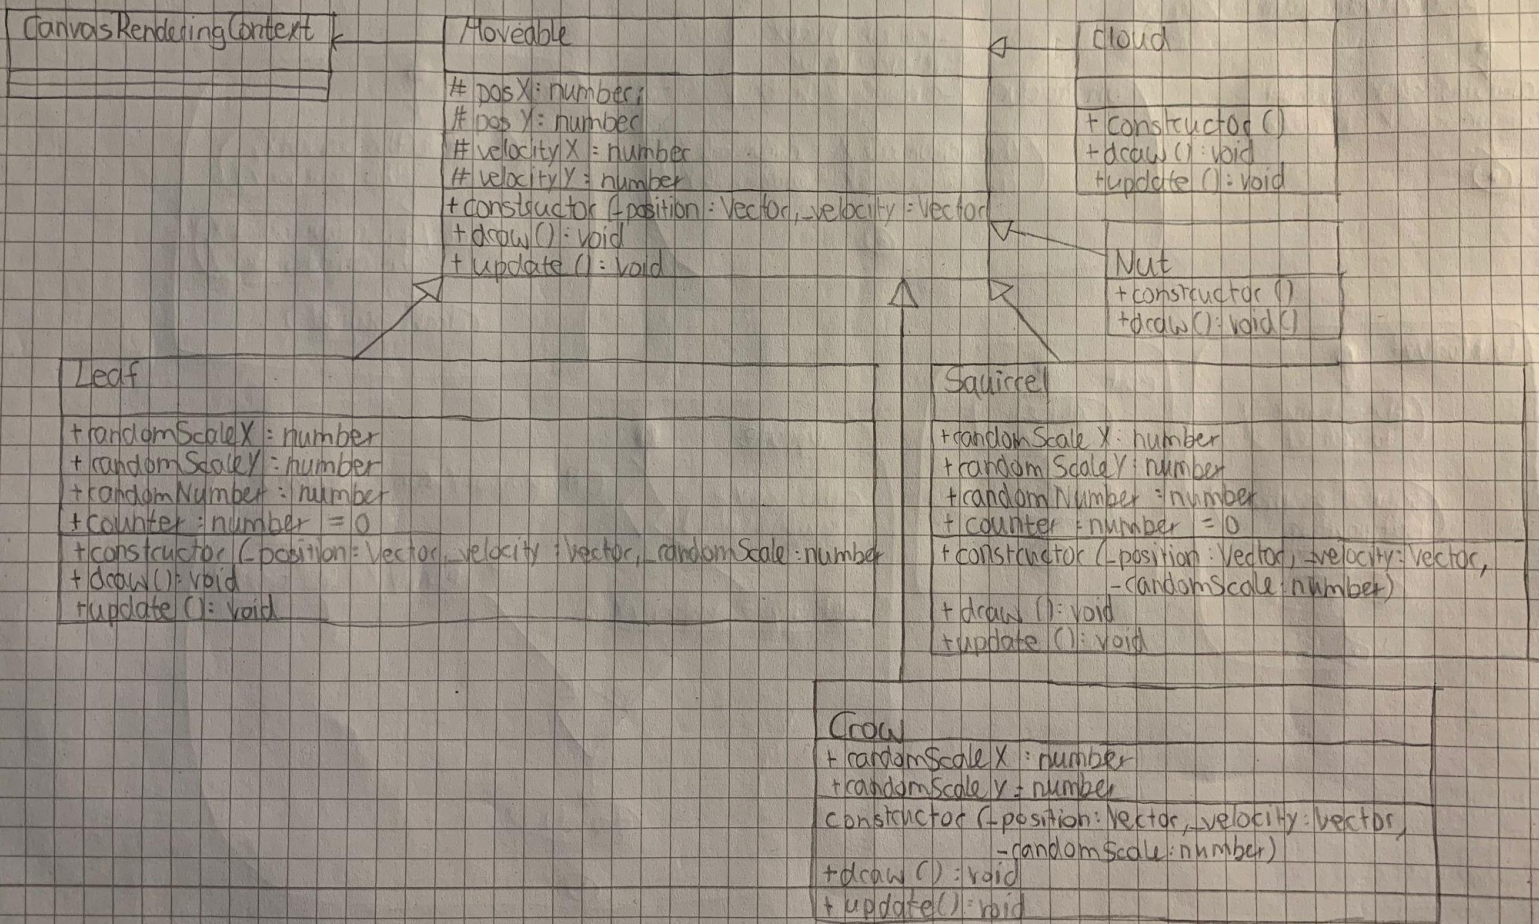 CanvasRenderingContext
Moveable
# posX: number;
# posY: number
# velocityX: number
# velocityY: number
+constructor (_position: Vector, _velocity: Vector
+draw(): void
+ update(): void
cloud
+ constructor ()
+draw(): void
+update(): void
Nut
+constructor ()
+draw(): void()
Leaf
+randomScaleX: number
+ randomScaleY: number
+randomNumber: number
+counter: number = 0
+constructor (_position: Vector, _velocity: Vector, _randomScale: number
+ draw(): void
+update(): void
Squirrel
+randomScale X: number
+random ScaleY: number
+randomNumber: number
+ counter: number = 0
+ constructor (_position: Vector, _velocity: Vector,
_randomScale: number)
+draw(): void
+update(): void
Crow
+ randomScale X: number
+randomScale Y: number
constructor (_position: Vector, _velocity: Vector,
_randomScale: number)
+draw(): void
+ update(): void